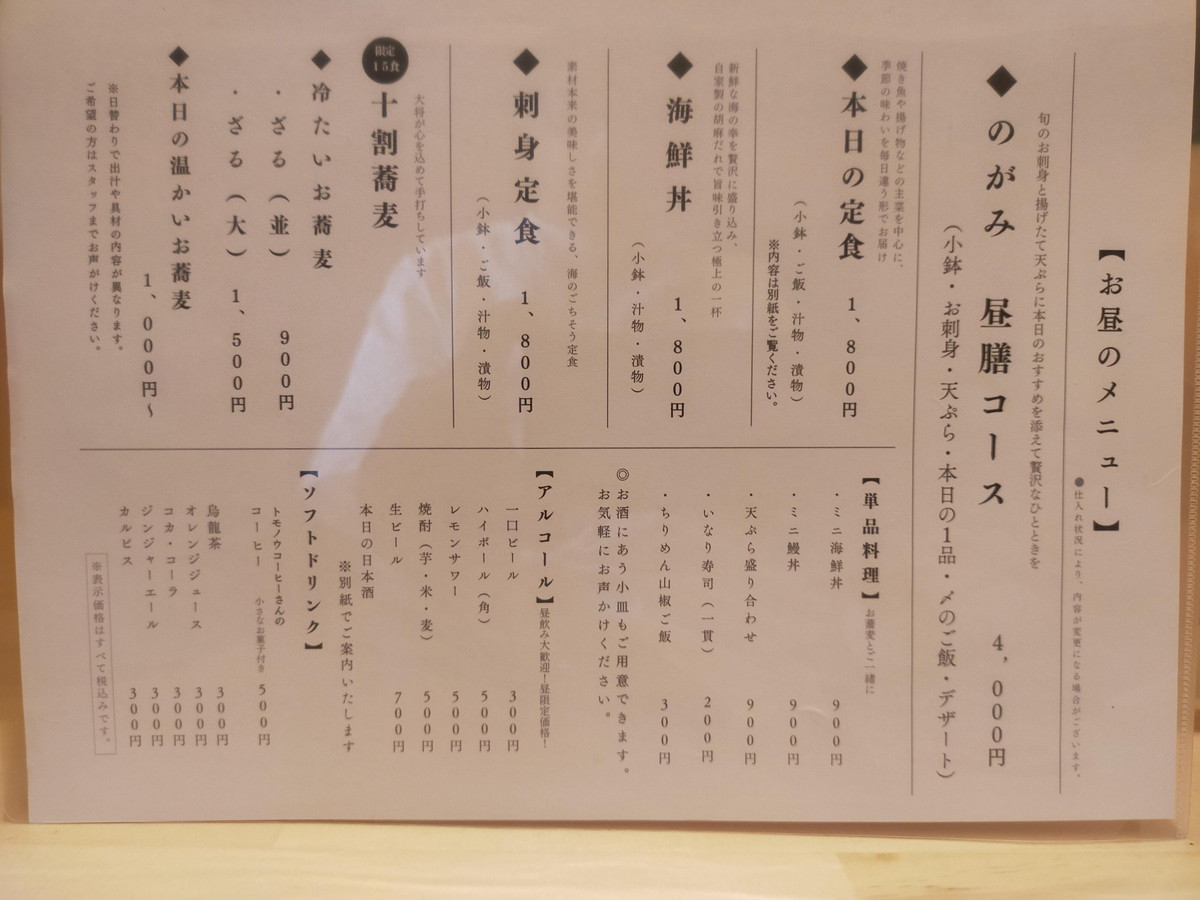 【お昼のメニュー】
●仕入れ状況により、内容が変更になる場合がございます。
旬のお刺身と揚げたて天ぷらに本日のおすすめを添えて贅沢なひとときを
◆のがみ 昼膳コース 4,000円
（小鉢・お刺身・天ぷら・本日の1品・〆のご飯・デザート）
焼き魚や揚げ物などの主菜を中心に、
季節の味わいを毎日違う形でお届け
◆本日の定食 1、800円
（小鉢・ご飯・汁物・漬物）
※内容は別紙をご覧ください。
新鮮な海の幸を贅沢に盛り込み、
自家製の胡麻だれで旨味引き立つ極上の一杯
◆海鮮丼 1、800円
（小鉢・汁物・漬物）
素材本来の美味しさを堪能できる、海のごちそう定食
◆刺身定食 1、800円
（小鉢・ご飯・汁物・漬物）
大将が心を込めて手打ちしています
限定
15食
十割蕎麦
◆冷たいお蕎麦
・ざる（並） 900円
・ざる（大） 1、500円
◆本日の温かいお蕎麦
1、000円〜
※日替わりで出汁や具材の内容が異なります。
ご希望の方はスタッフまでお声がけください。
【単品料理】お蕎麦とご一緒に
・ミニ海鮮丼 900円
・ミニ鰻丼 900円
・天ぷら盛り合わせ 900円
・いなり寿司（一貫） 200円
・ちりめん山椒ご飯 300円
◎お酒にあう小皿もご用意できます。
お気軽にお声かけください。
【アルコール】昼飲み大歓迎！昼限定価格！
一口ビール 300円
ハイボール（角） 500円
レモンサワー 500円
焼酎（芋・米・麦） 500円
生ビール 700円
本日の日本酒
※別紙でご案内いたします
【ソフトドリンク】
トモノウコーヒーさんの
コーヒー 小さなお菓子付き 500円
烏龍茶 300円
オレンジジュース 300円
コカ・コーラ 300円
ジンジャーエール 300円
カルピス 300円
※表示価格はすべて税込みです。